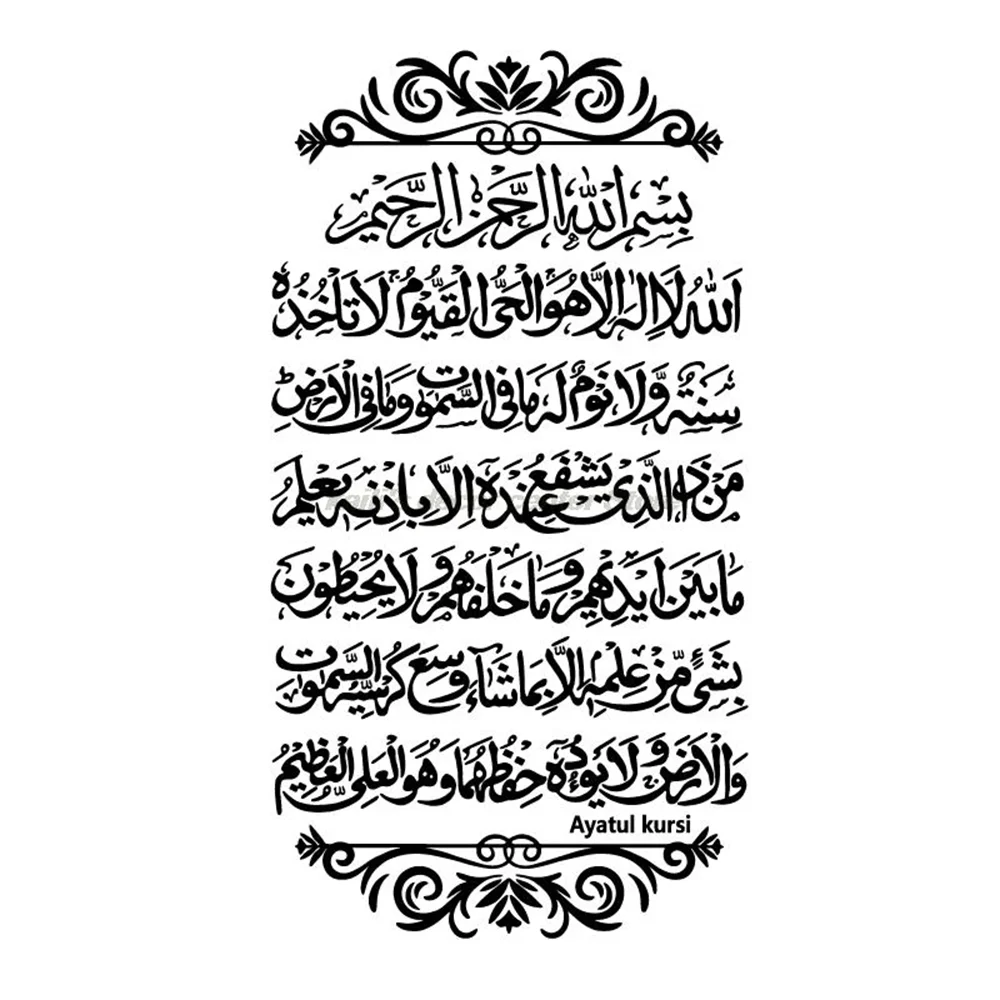 بِسْمِ اللهِ الرَّحْمٰنِ الرَّحِيْمِ
اَللهُ لَا اِلٰهَ اِلَّا هُوَ اَلْحَيُّ الْقَيُّوْمُ لَا تَاْخُذُهٗ
سِنَةٌ وَّلَا نَوْمٌ لَهٗ مَا فِى السَّمٰوٰتِ وَمَا فِى الْاَرْضِ
مَنْ ذَا الَّذِىْ يَشْفَعُ عِنْدَهٗ اِلَّا بِاِذْنِهٖ يَعْلَمُ
مَا بَيْنَ اَيْدِيْهِمْ وَمَا خَلْفَهُمْ وَلَا يُحِيْطُوْنَ
بِشَىْءٍ مِّنْ عِلْمِهٖ اِلَّا بِمَا شَآءَ وَسِعَ كُرْسِيُّهُ السَّمٰوٰتِ
وَالْاَرْضَ وَلَا يَـُٔوْدُهٗ حِفْظُهُمَا وَهُوَ الْعَلِىُّ الْعَظِيْمُ
Ayatul kursi